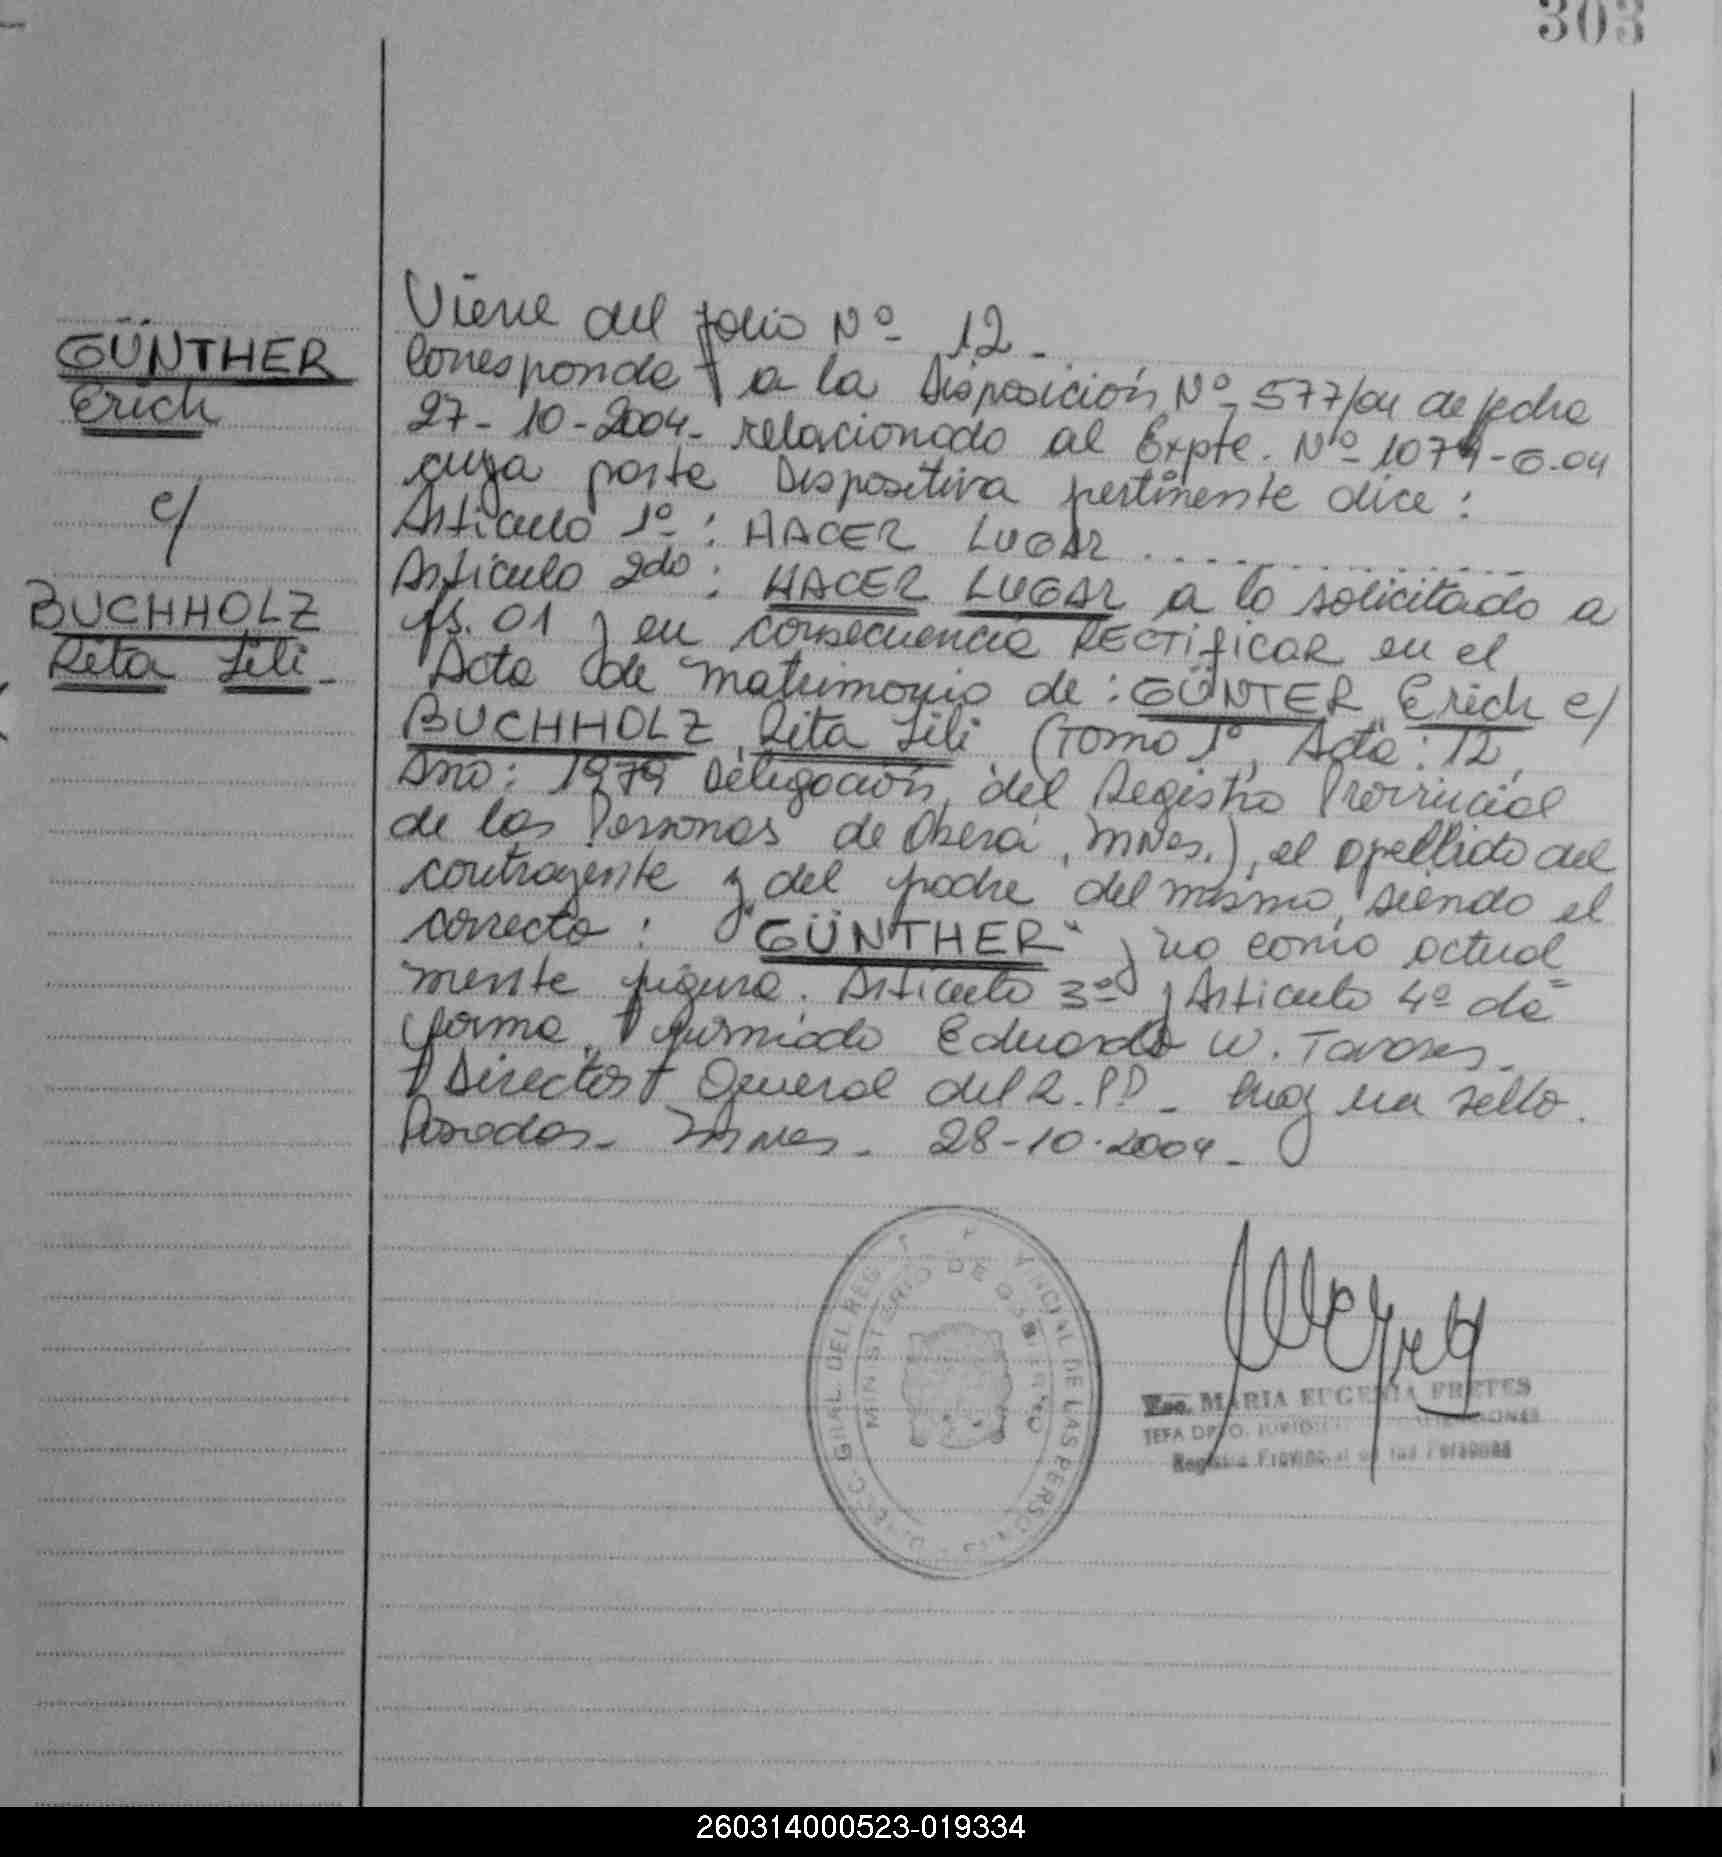 303
GÜNTHER
Erich
c/
BUCHHOLZ
Rita Lili-
Viene del folio Nº 12-
Corresponde a la Disposición Nº 577/04 de fecha
27-10-2004- relacionado al Expte. Nº 1074-G-04
cuya parte Dispositiva pertinente dice:
Artículo 1º: HACER LUGAR ..............
Artículo 2do: HACER LUGAR a lo solicitado a
fs. 01 y en consecuencia RECTIFICAR en el
Acta de matrimonio de: GÜNTER Erich c/
BUCHHOLZ, Rita Lili (Tomo 1º, Acta: 12,
Año: 1979 Delegación, del Registro Provincial
de las Personas de Oberá, Mnes.), el apellido del
contrayente y del padre del mismo, siendo el
correcto: "GÜNTHER" y no como actual=
mente figura. Artículo 3º y Artículo 4º de
forma, firmado Eduardo W. Tavares-
Director General del R.P.P- hay un sello.
Posadas- Mnes- 28-10-2004-
DIRECC. GRAL. DEL REG
INCIAL DE LAS PERSONAS
MINISTERIO DE GOBIERNO
Esc. MARIA EUGENIA FRETES
JEFA DPTO.
Registro Provincial de las Personas
260314000523-019334